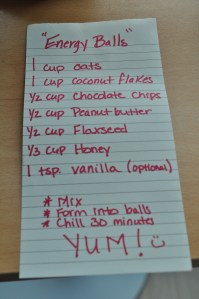 "Energy Balls"
1 cup oats
1 cup coconut flakes
1/2 cup Chocolate Chips
1/2 cup Peanut butter
1/2 cup Flaxseed
1/3 cup Honey
1 tsp. vanilla (optional)
* Mix
* Form into balls
* Chill 30 minutes
YUM!